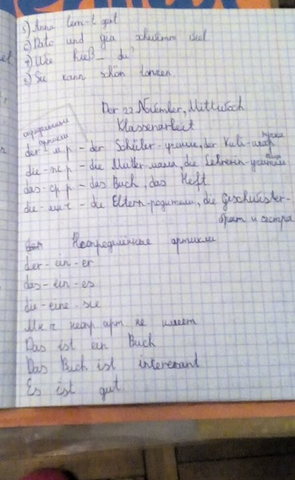 5) Anna lern-t gut
6) Dato und gea schwimm viel
7) Wie heiß_ du?
8) Sie kann schön tanzen
Der 22 November, Mittwoch
Klassenarbeit
der - м.р - der Schüler - ученик, der Kuli - ручка
die - ж.р - die Mutter - мама, die Lehrerin -
das - ср.р - das Buch, das Heft
die - мн.ч - die Eltern - родители, die Geschwister -
брат и сестра
Неопределённые артикли
der - ein - er
das - ein - es
die - eine - sie
Мн.ч неопр арт не имеет
Das ist ein Buch
Das Buch ist interesant
Es ist gut